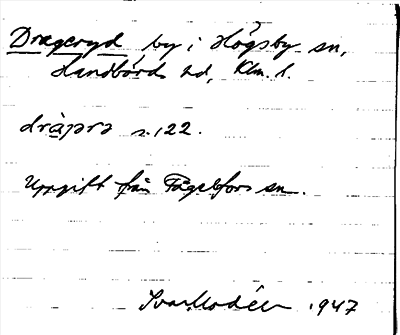 Drageryd by i Högsby sn,
Handbörd hd, Klm. l.
dràpra s. 122.
Uppgift från Fågelfors sn.
Ivar Modéer 1947